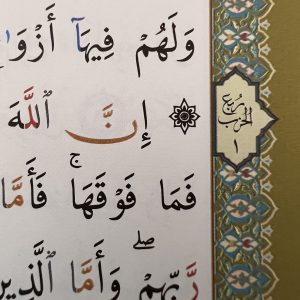 وَلَهُمْ فِيهَآ أَزْوَٰ
۞ إِنَّ ٱللَّهَ
فَمَا فَوْقَهَاۚ فَأَمَّا
رَّبِّهِمْۖ وَأَمَّا ٱلَّذِينَ
ربع
الحزب
١